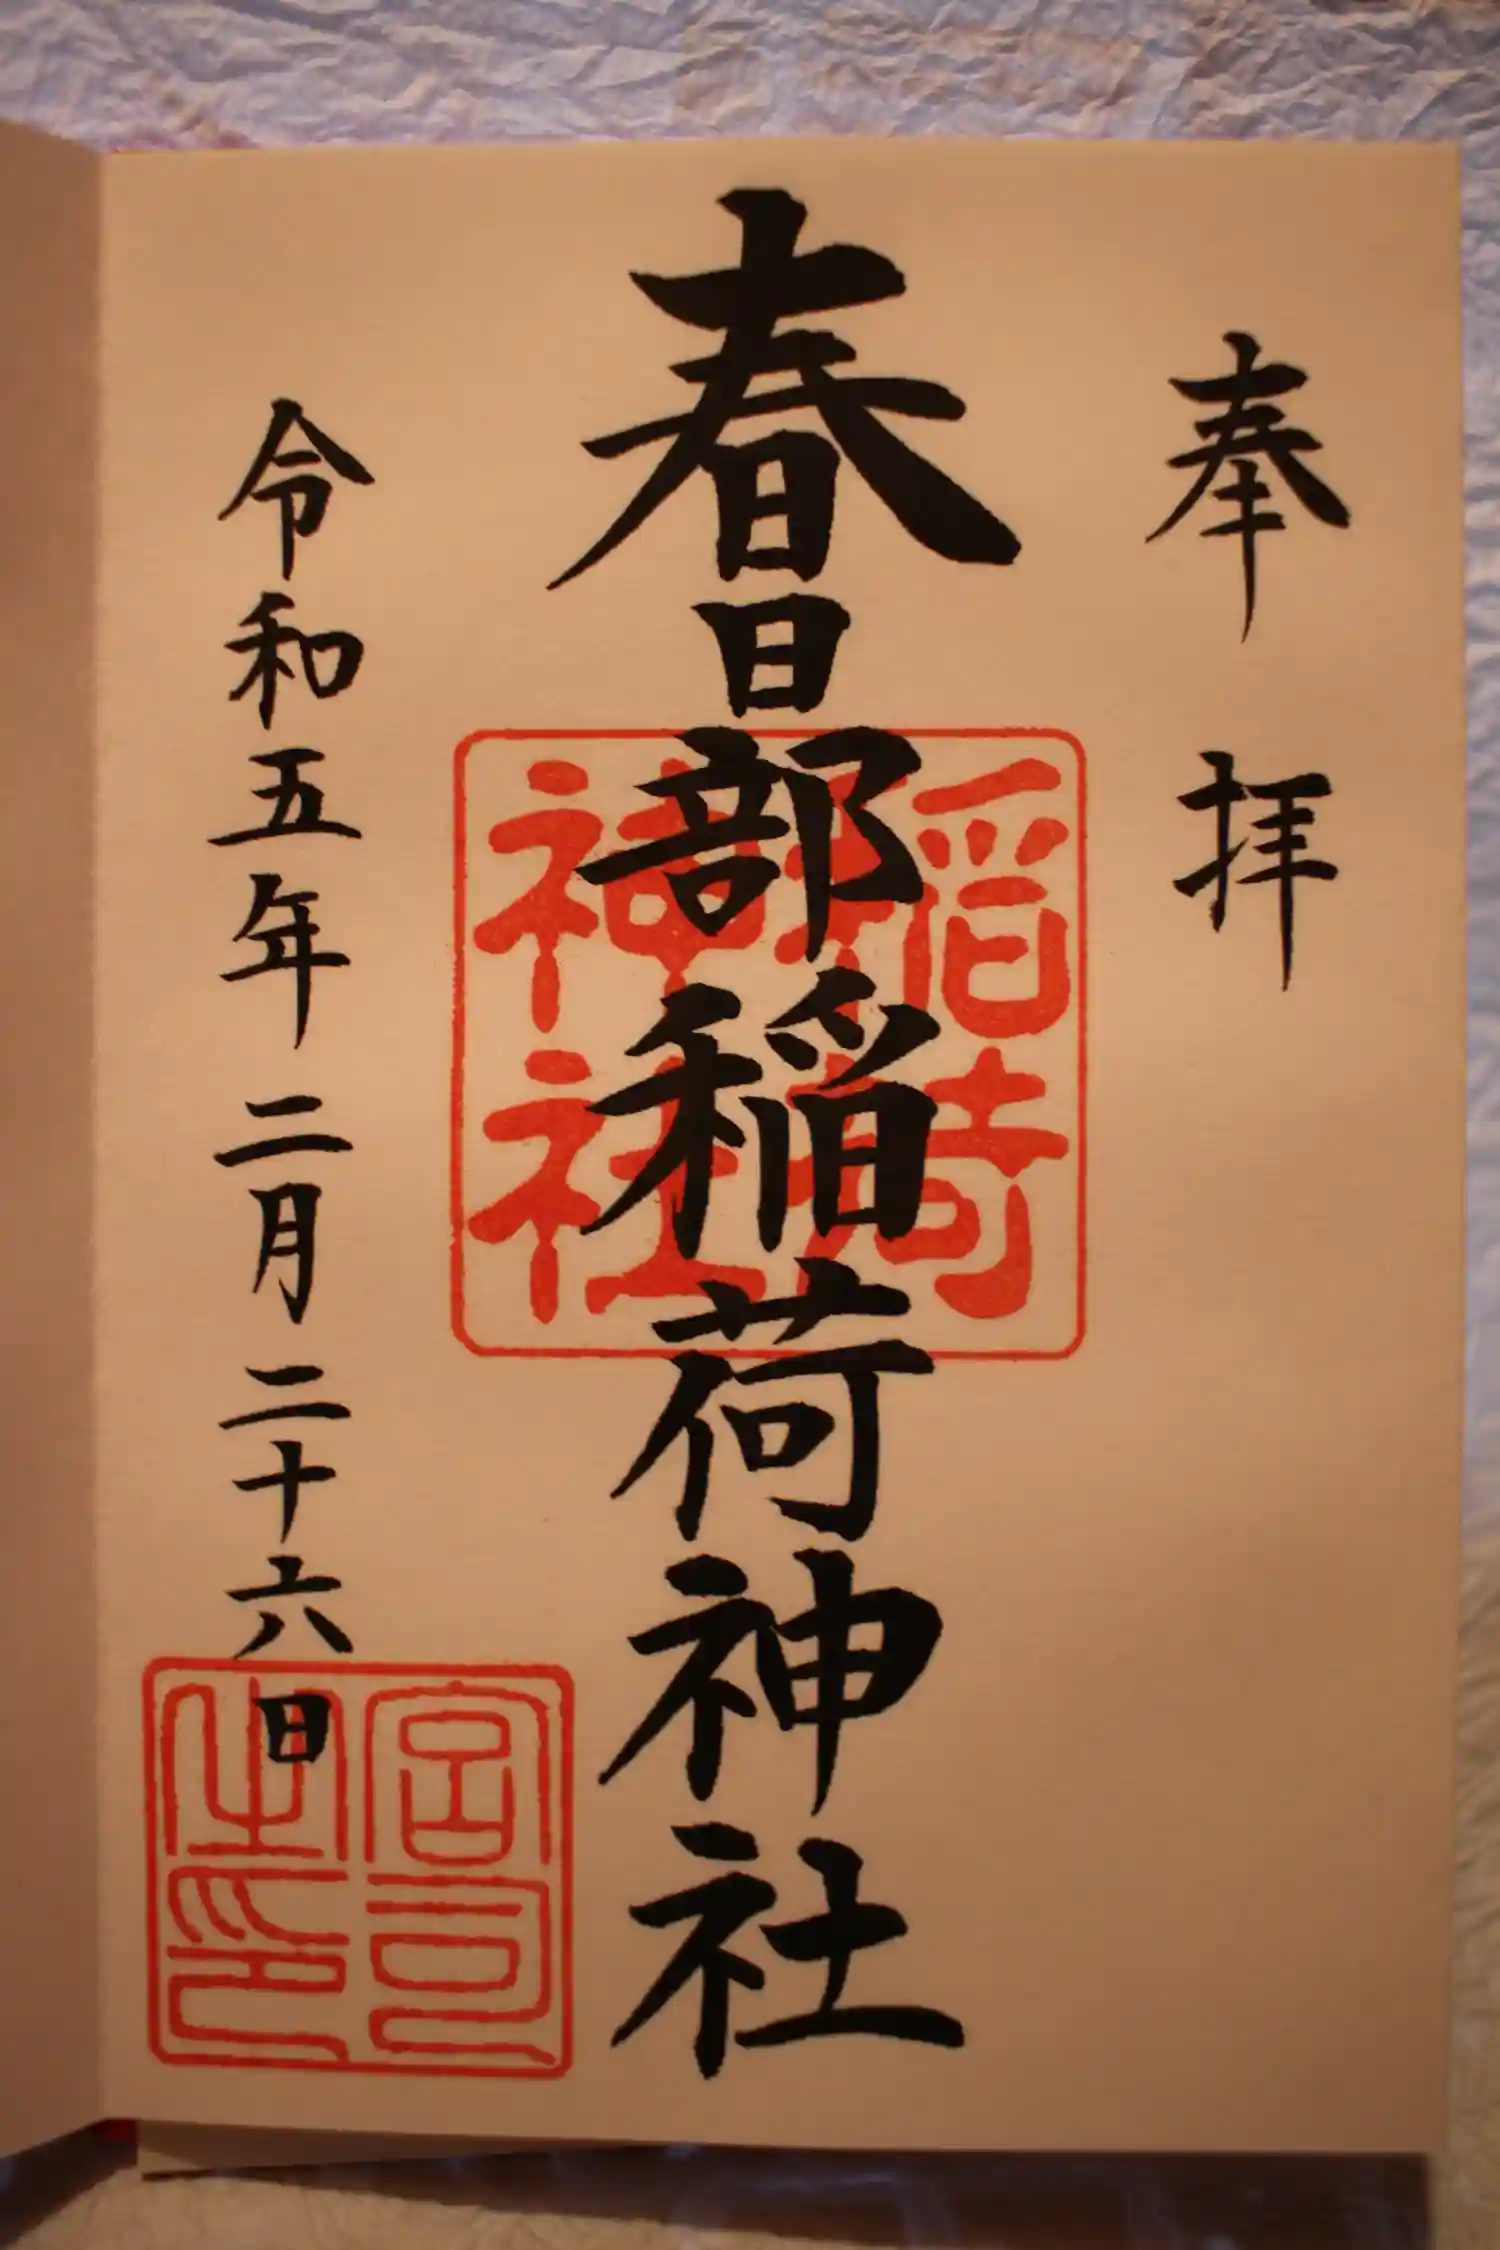 奉拝
春日部稲荷神社
稲荷
神社
令和五年二月二十六日
宮司
之印